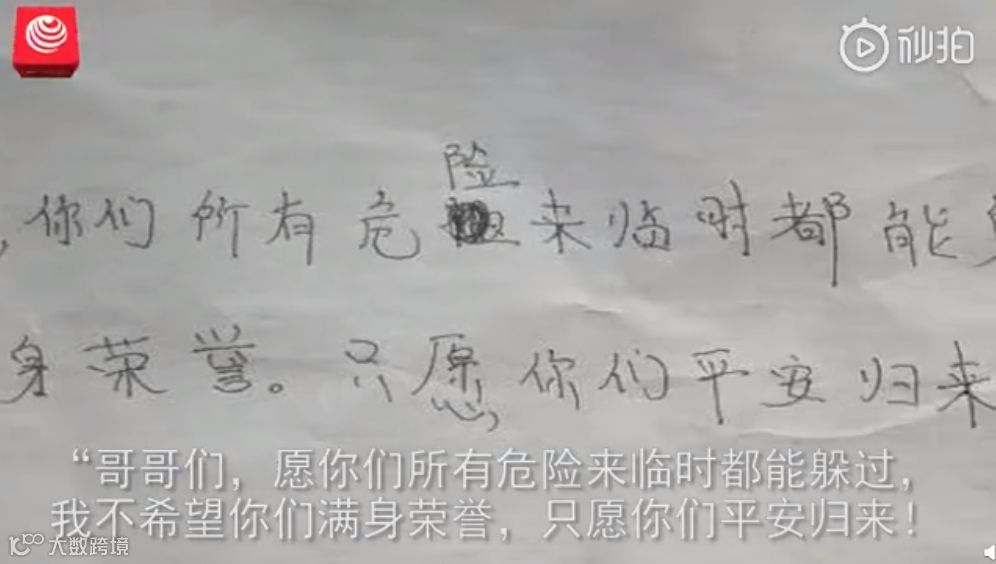 秒拍
险
,你们所有危来临时都能
身荣誉。只愿你们平安归来
“哥哥们，愿你们所有危险来临时都能躲过，
我不希望你们满身荣誉，只愿你们平安归来！
大数跨境